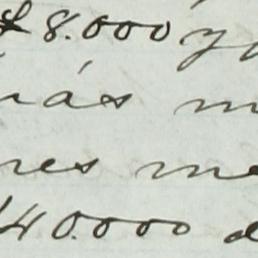 £ 8.000 y
más m
res me
140.000 d